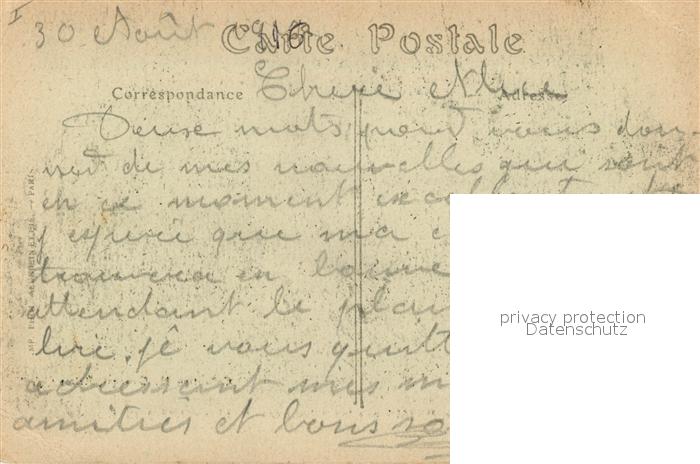 I
30 Août 1916
Carte Postale
Chère
Correspondance
Adresse
Deux mots pour vous don
né de mes nouvelles qui sont
en ce moment
j espère que ma
trouvera en bonne
attendant le plai
lire. je vous quitt
adressent mes m
amitiés et bons
privacy protection
Datenschutz